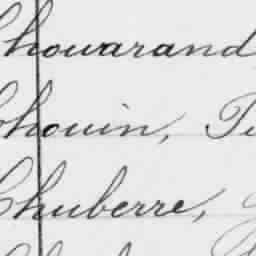 Chowarand
Chouin, Pi
Chuberre,